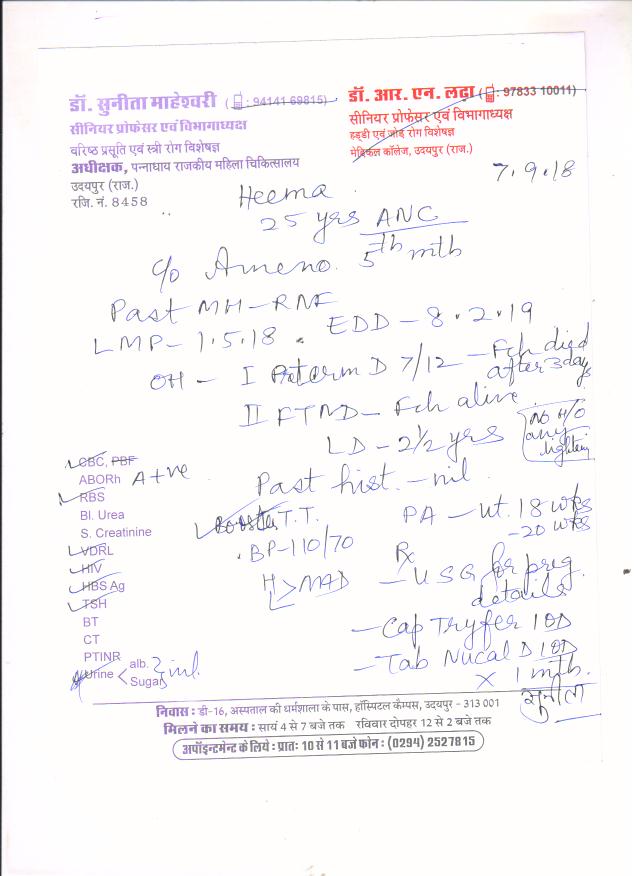 डॉ. सुनीता माहेश्वरी (: 94141 69815)
सीनियर प्रोफेसर एवं विभागाध्यक्ष
वरिष्ठ प्रसूति एवं स्त्री रोग विशेषज्ञ
अधीक्षक, पन्नाधाय राजकीय महिला चिकित्सालय
उदयपुर (राज.)
रजि. नं. 8458
डॉ. आर. एन. लढ़ा (: 97833 10011)
सीनियर प्रोफेसर एवं विभागाध्यक्ष
हड्डी एवं जोड़ रोग विशेषज्ञ
मेडिकल कॉलेज, उदयपुर (राज.)
7.9.18
Heema
25 yrs ANC
c/o Ameno. 5th mth
Past MH - RNF
LMP - 1.5.18. EDD - 8.2.19
OH - I Preterm D 7/12 - Fch died after 3 days
II FTND - Fch alive
LD - 2 1/2 yrs
No H/O any
Past hist. - nil
CBC, PBF
ABORh A+ve
RBS
Bl. Urea
S. Creatinine
VDRL
HIV
HBS Ag
TSH
BT
CT
PTINR
Urine < alb. Sugar } nil
Booster T.T.
BP - 110/70
H L > NAD
PA - Ut. 18 wks - 20 wks
Rx
- USG for preg. details
- Cap Tryfer 1 OD
- Tab Nucal D 1 OD
x 1 mth.
सुनीता
निवास : डी-16, अस्पताल की धर्मशाला के पास, हॉस्पिटल कैम्पस, उदयपुर - 313 001
मिलने का समय : सायं 4 से 7 बजे तक रविवार दोपहर 12 से 2 बजे तक
अपॉइन्टमेन्ट के लिये : प्रातः 10 से 11 बजे फोन : (0294) 2527815